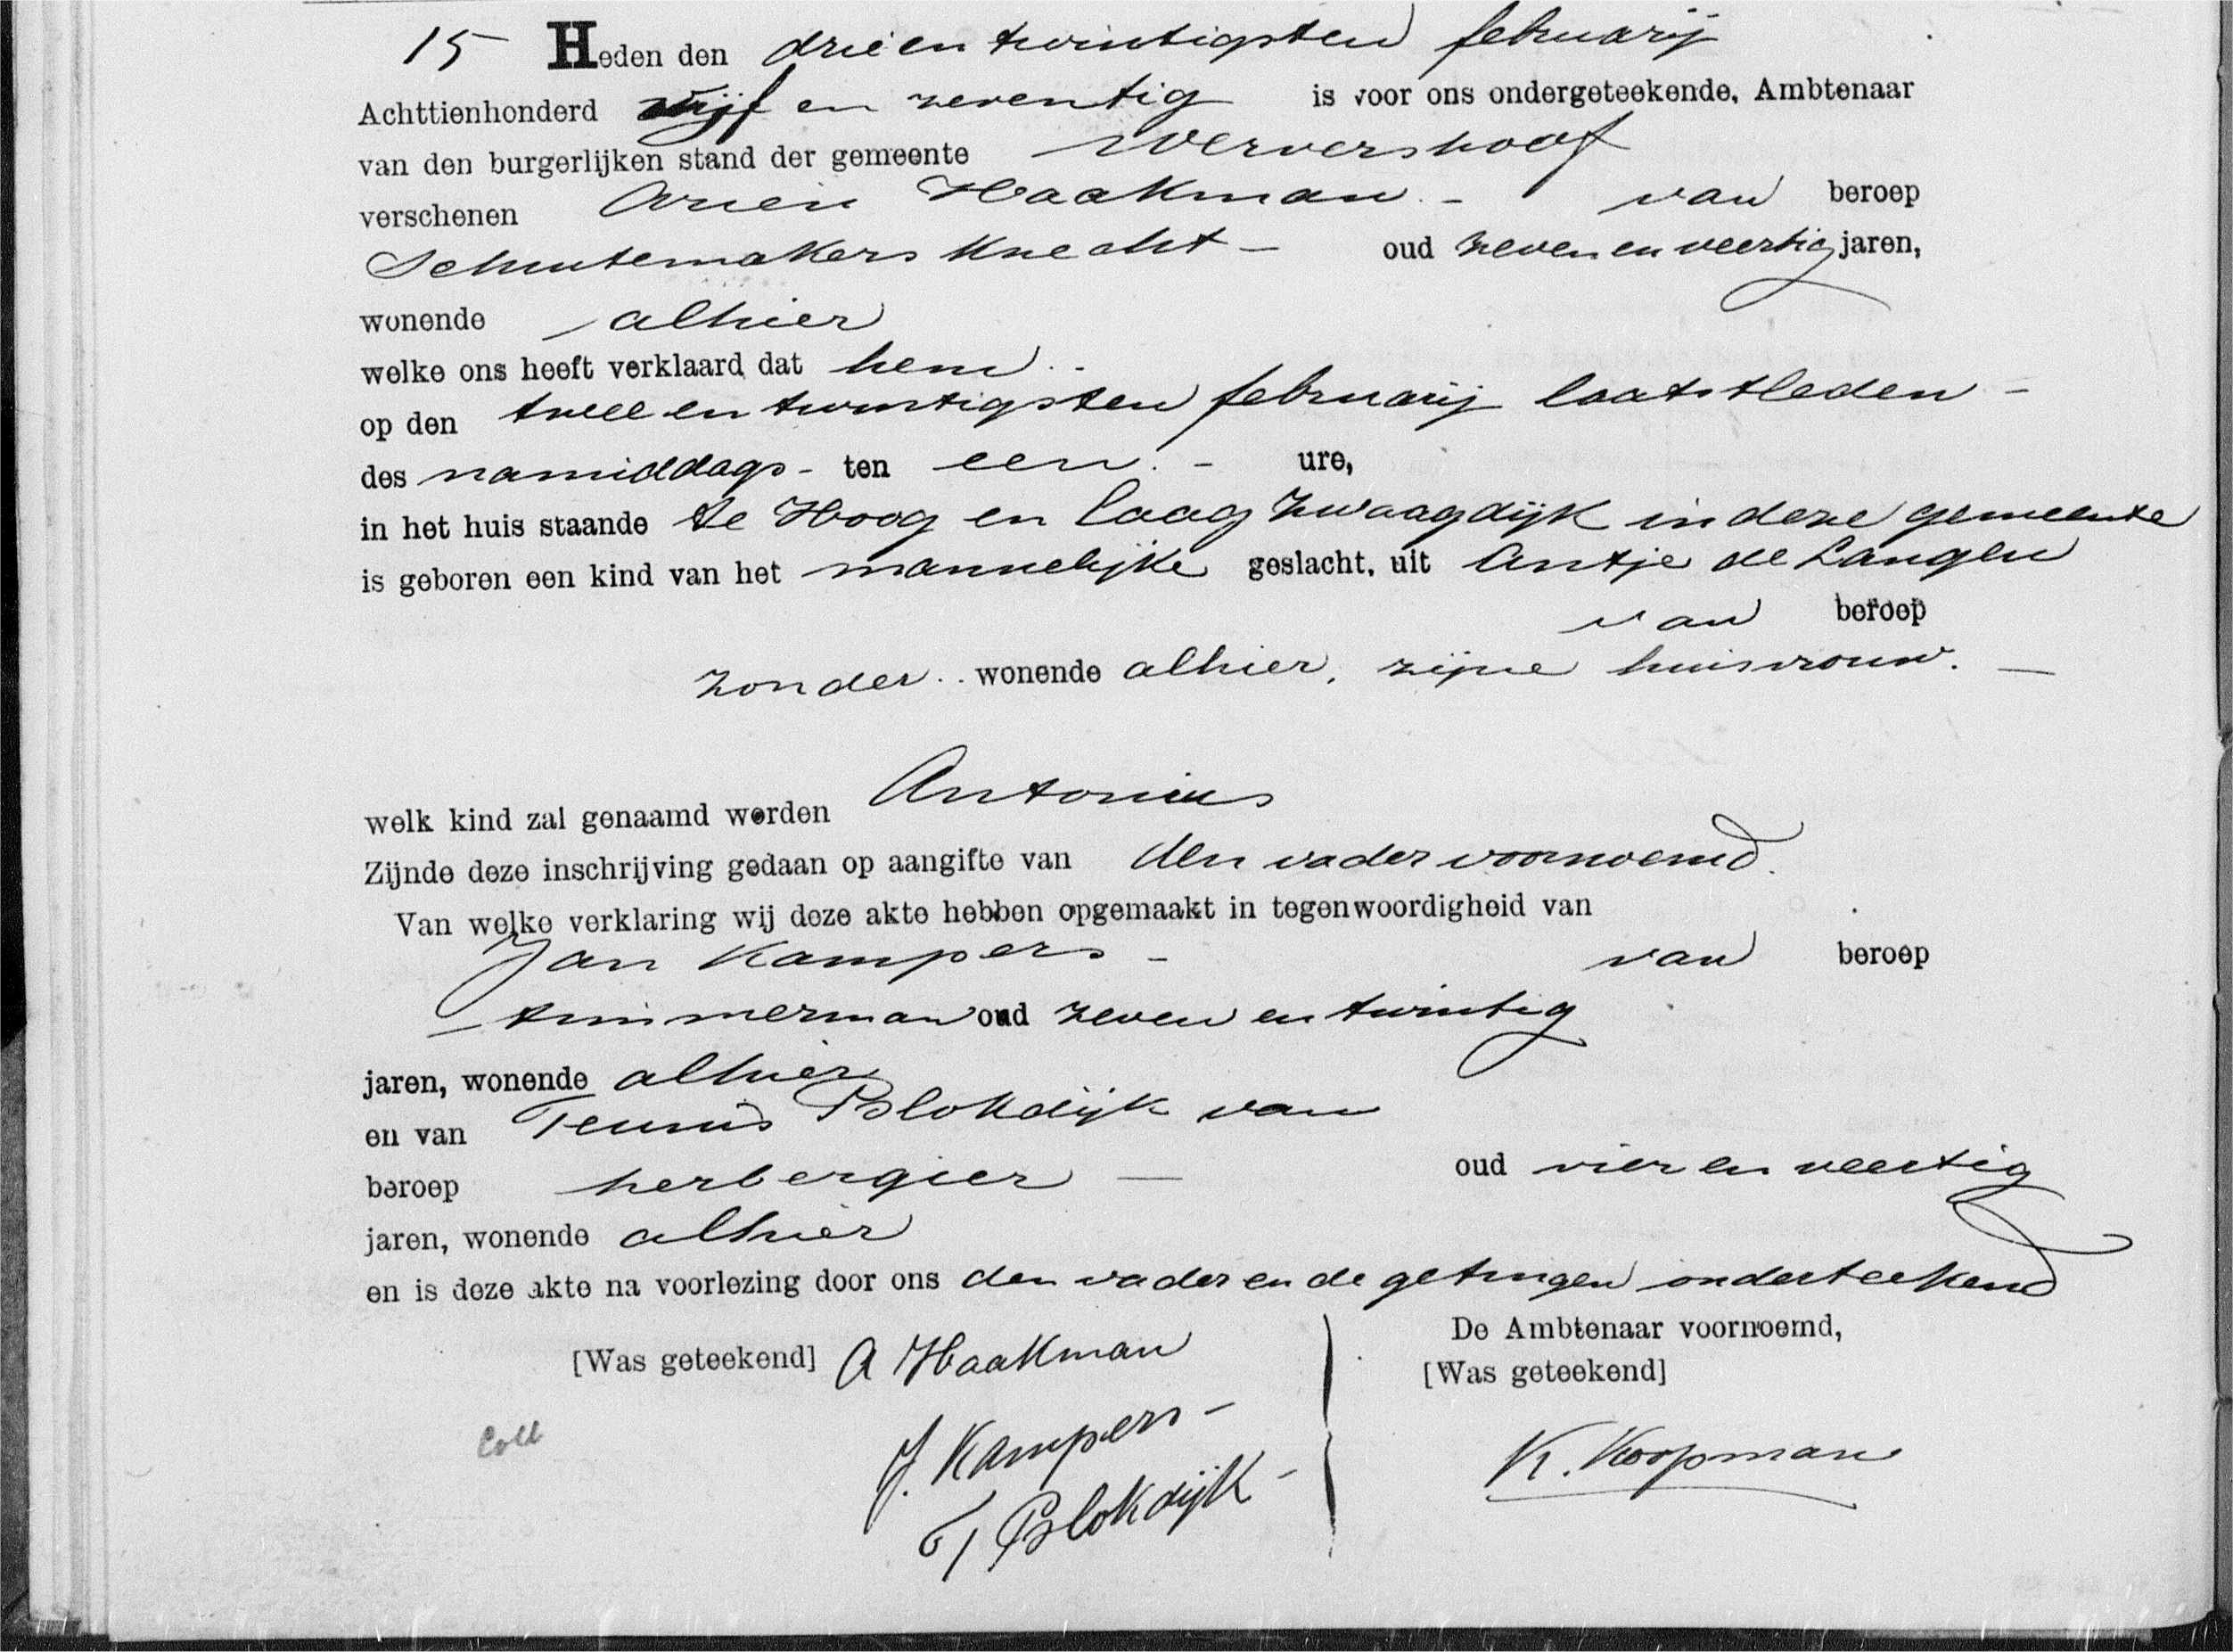 15 Heden den drieentwintigsten februarij
Achttienhonderd vijf en zeventig is voor ons ondergeteekende, Ambtenaar
van den burgerlijken stand der gemeente Wervershoof
verschenen Arien Haakman - van beroep
Schuitemakers knecht - oud zeven en veertig jaren,
wonende alhier
welke ons heeft verklaard dat hem
op den twee en twintigsten februarij laatstleden -
des namiddags - ten een - ure,
in het huis staande te Hoog en Laag Zwaagdijk in deze gemeente
is geboren een kind van het mannelijke geslacht, uit Antje de Langen
van beroep
zonder wonende alhier, zijne huisvrouw. -
welk kind zal genaamd worden Antonius
Zijnde deze inschrijving gedaan op aangifte van den vader voornoemd.
Van welke verklaring wij deze akte hebben opgemaakt in tegenwoordigheid van
Jan Kampers - van beroep
- timmerman oud zeven en twintig
jaren, wonende alhier
en van Teunis Blokdijk van
beroep herbergier - oud vier en veertig
jaren, wonende alhier
en is deze akte na voorlezing door ons den vader en de getuigen onderteekend
De Ambtenaar voornoemd,
[Was geteekend] A Haakman
[Was geteekend]
J. Kampers -
K. Koopman
T Blokdijk -
Coll